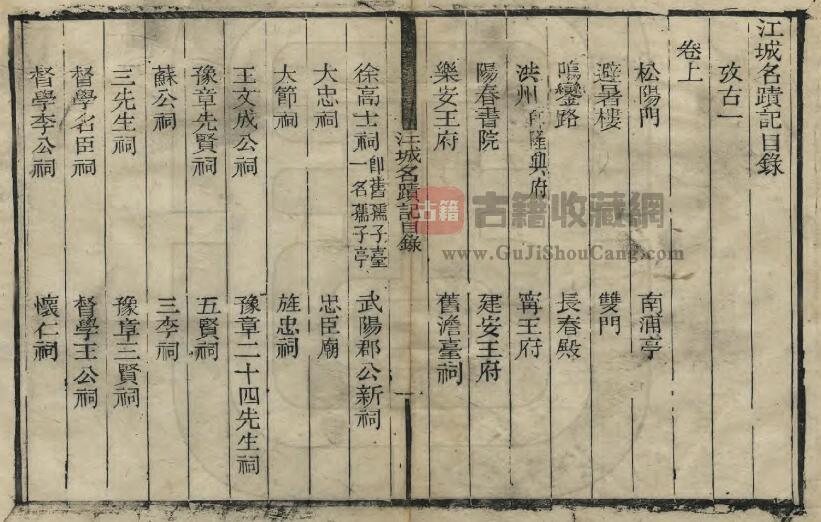 江城名蹟記目錄
攷古一
卷上
松陽門 南浦亭
避暑樓 雙門
鳴鑾路 長春殿
洪州 即隆興府 甯王府
陽春書院 建安王府
樂安王府 舊澹臺祠
江城名蹟記目錄
徐高士祠 即舊孺子臺一名孺子亭 武陽郡公新祠
大忠祠 忠臣廟
大節祠 旌忠祠
王文成公祠 豫章二十四先生祠
豫章先賢祠 五賢祠
蘇公祠 三李祠
三先生祠 豫章三賢祠
督學名臣祠 督學王公祠
督學李公祠 懷仁祠
古籍 古籍收藏網
www.GuJiShouCang.com